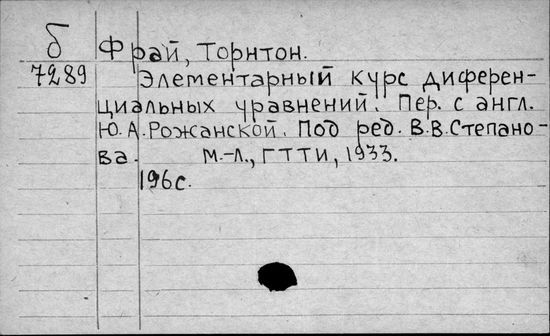 б Фрай, Торнтон.
7289 Элементарный курс диферен-
циальных уравнений. Пер. с англ.
Ю.А.Рожанской. Под ред. В.В.Степано-
ва. М.-Л., ГТТИ, 1933.
196с.